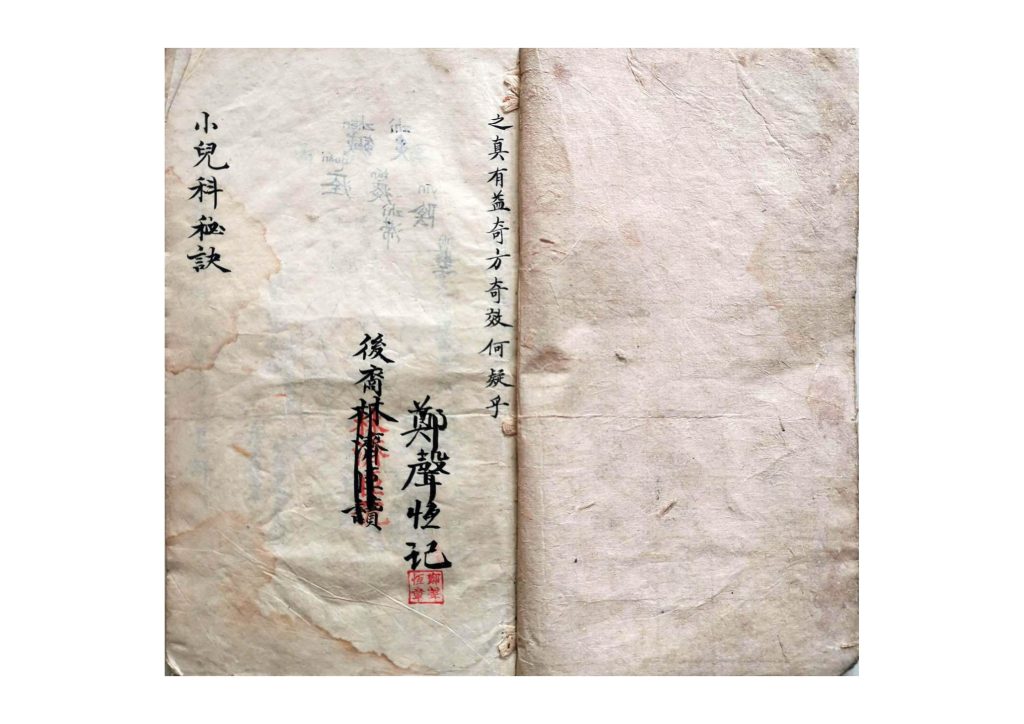 之真有益奇方奇效何疑乎
鄭聲恒记
後裔林濟臣讀
小兒科秘訣